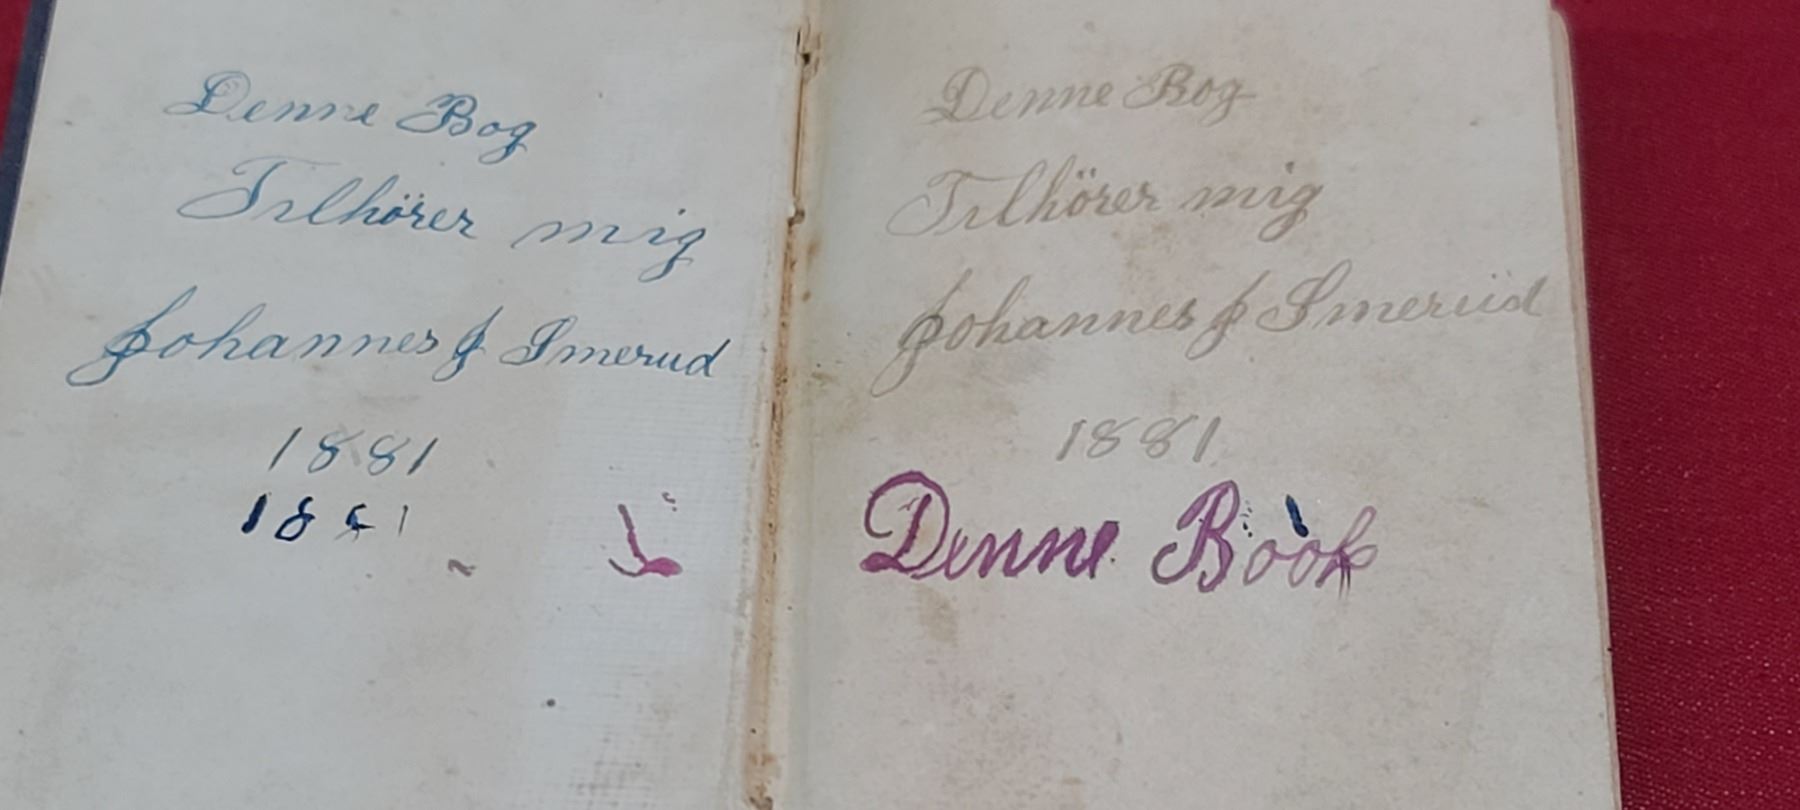 Denne Bog
Tilhörer mig
Johannes J Smerud
1881
1881
Denne Bog
Tilhörer mig
Johannes J Smerüd
1881
Denne Book